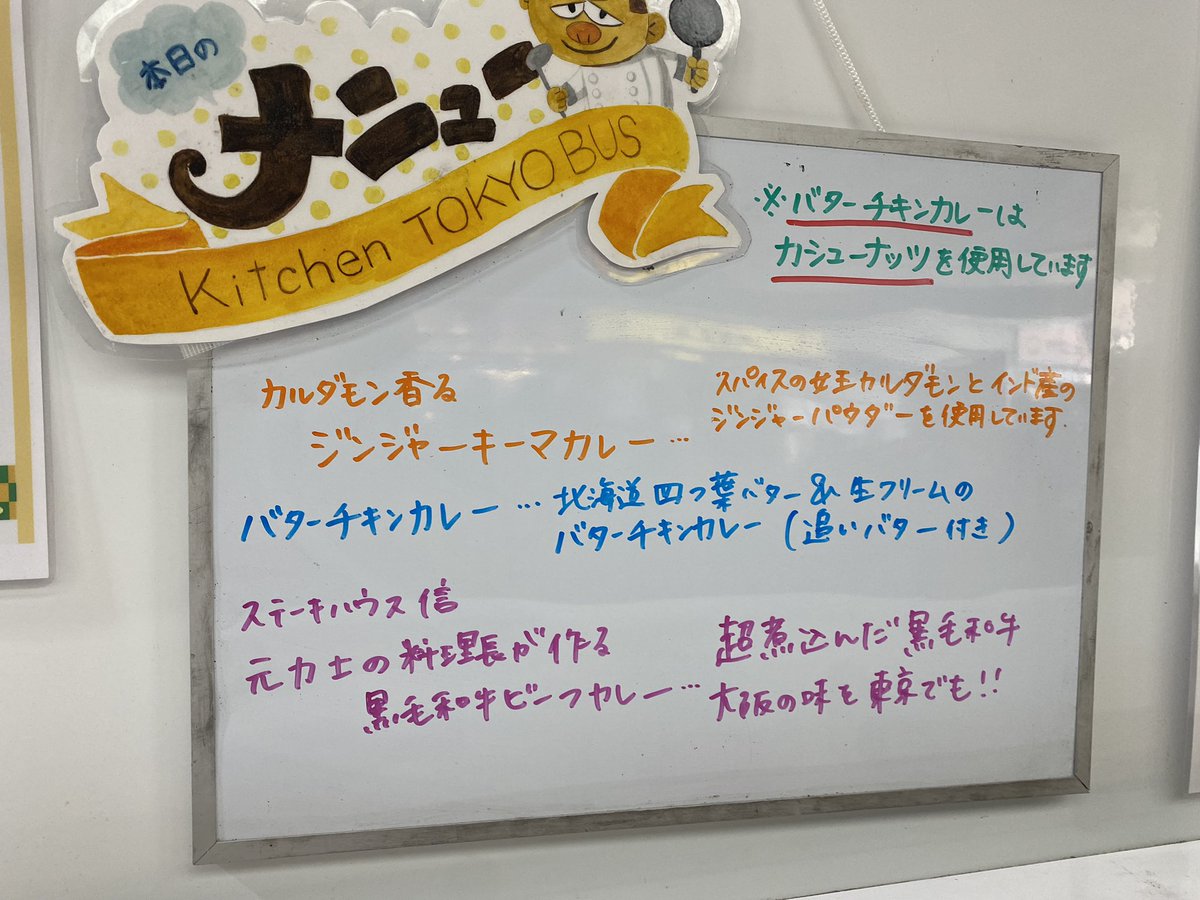 本日の
メニュー
Kitchen TOKYO BUS
※バターチキンカレーは
カシューナッツを使用しています
カルダモン香る
ジンジャーキーマカレー…
スパイスの女王カルダモンとインド産の
ジンジャーパウダーを使用しています.
バターチキンカレー…
北海道四つ葉バター&生クリームの
バターチキンカレー(追いバター付き)
ステーキハウス信
元力士の料理長が作る
黒毛和牛ビーフカレー…
超煮込んだ黒毛和牛
大阪の味を東京でも!!